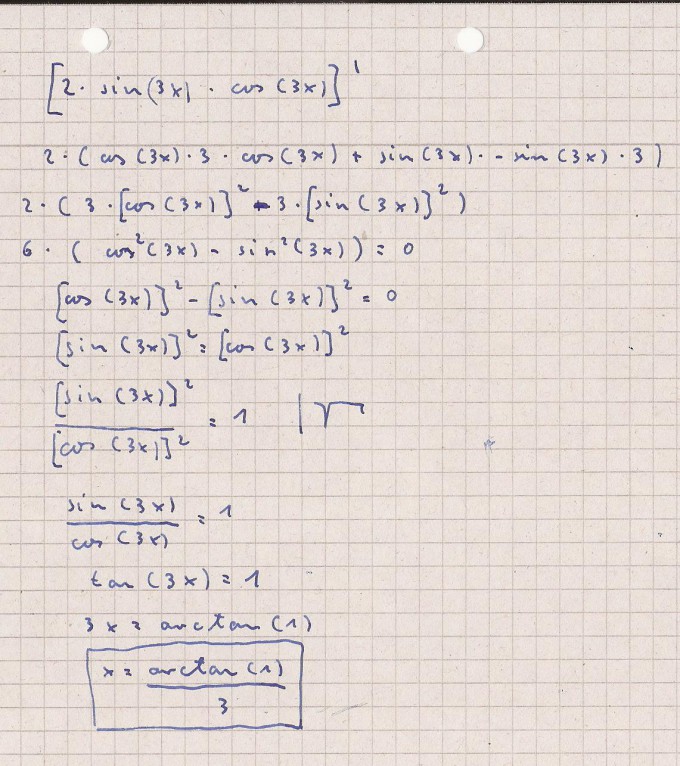 [2 · sin(3x) · cos(3x)]'
2 · (cos(3x) · 3 · cos(3x) + sin(3x) · - sin(3x) · 3)
2 · (3 · [cos(3x)]² - 3 · [sin(3x)]²)
6 · (cos²(3x) - sin²(3x)) = 0
[cos(3x)]² - [sin(3x)]² = 0
[sin(3x)]² = [cos(3x)]²
[sin(3x)]² / [cos(3x)]² = 1 | √
sin(3x) / cos(3x) = 1
tan(3x) = 1
3x = arctan(1)
x = arctan(1) / 3